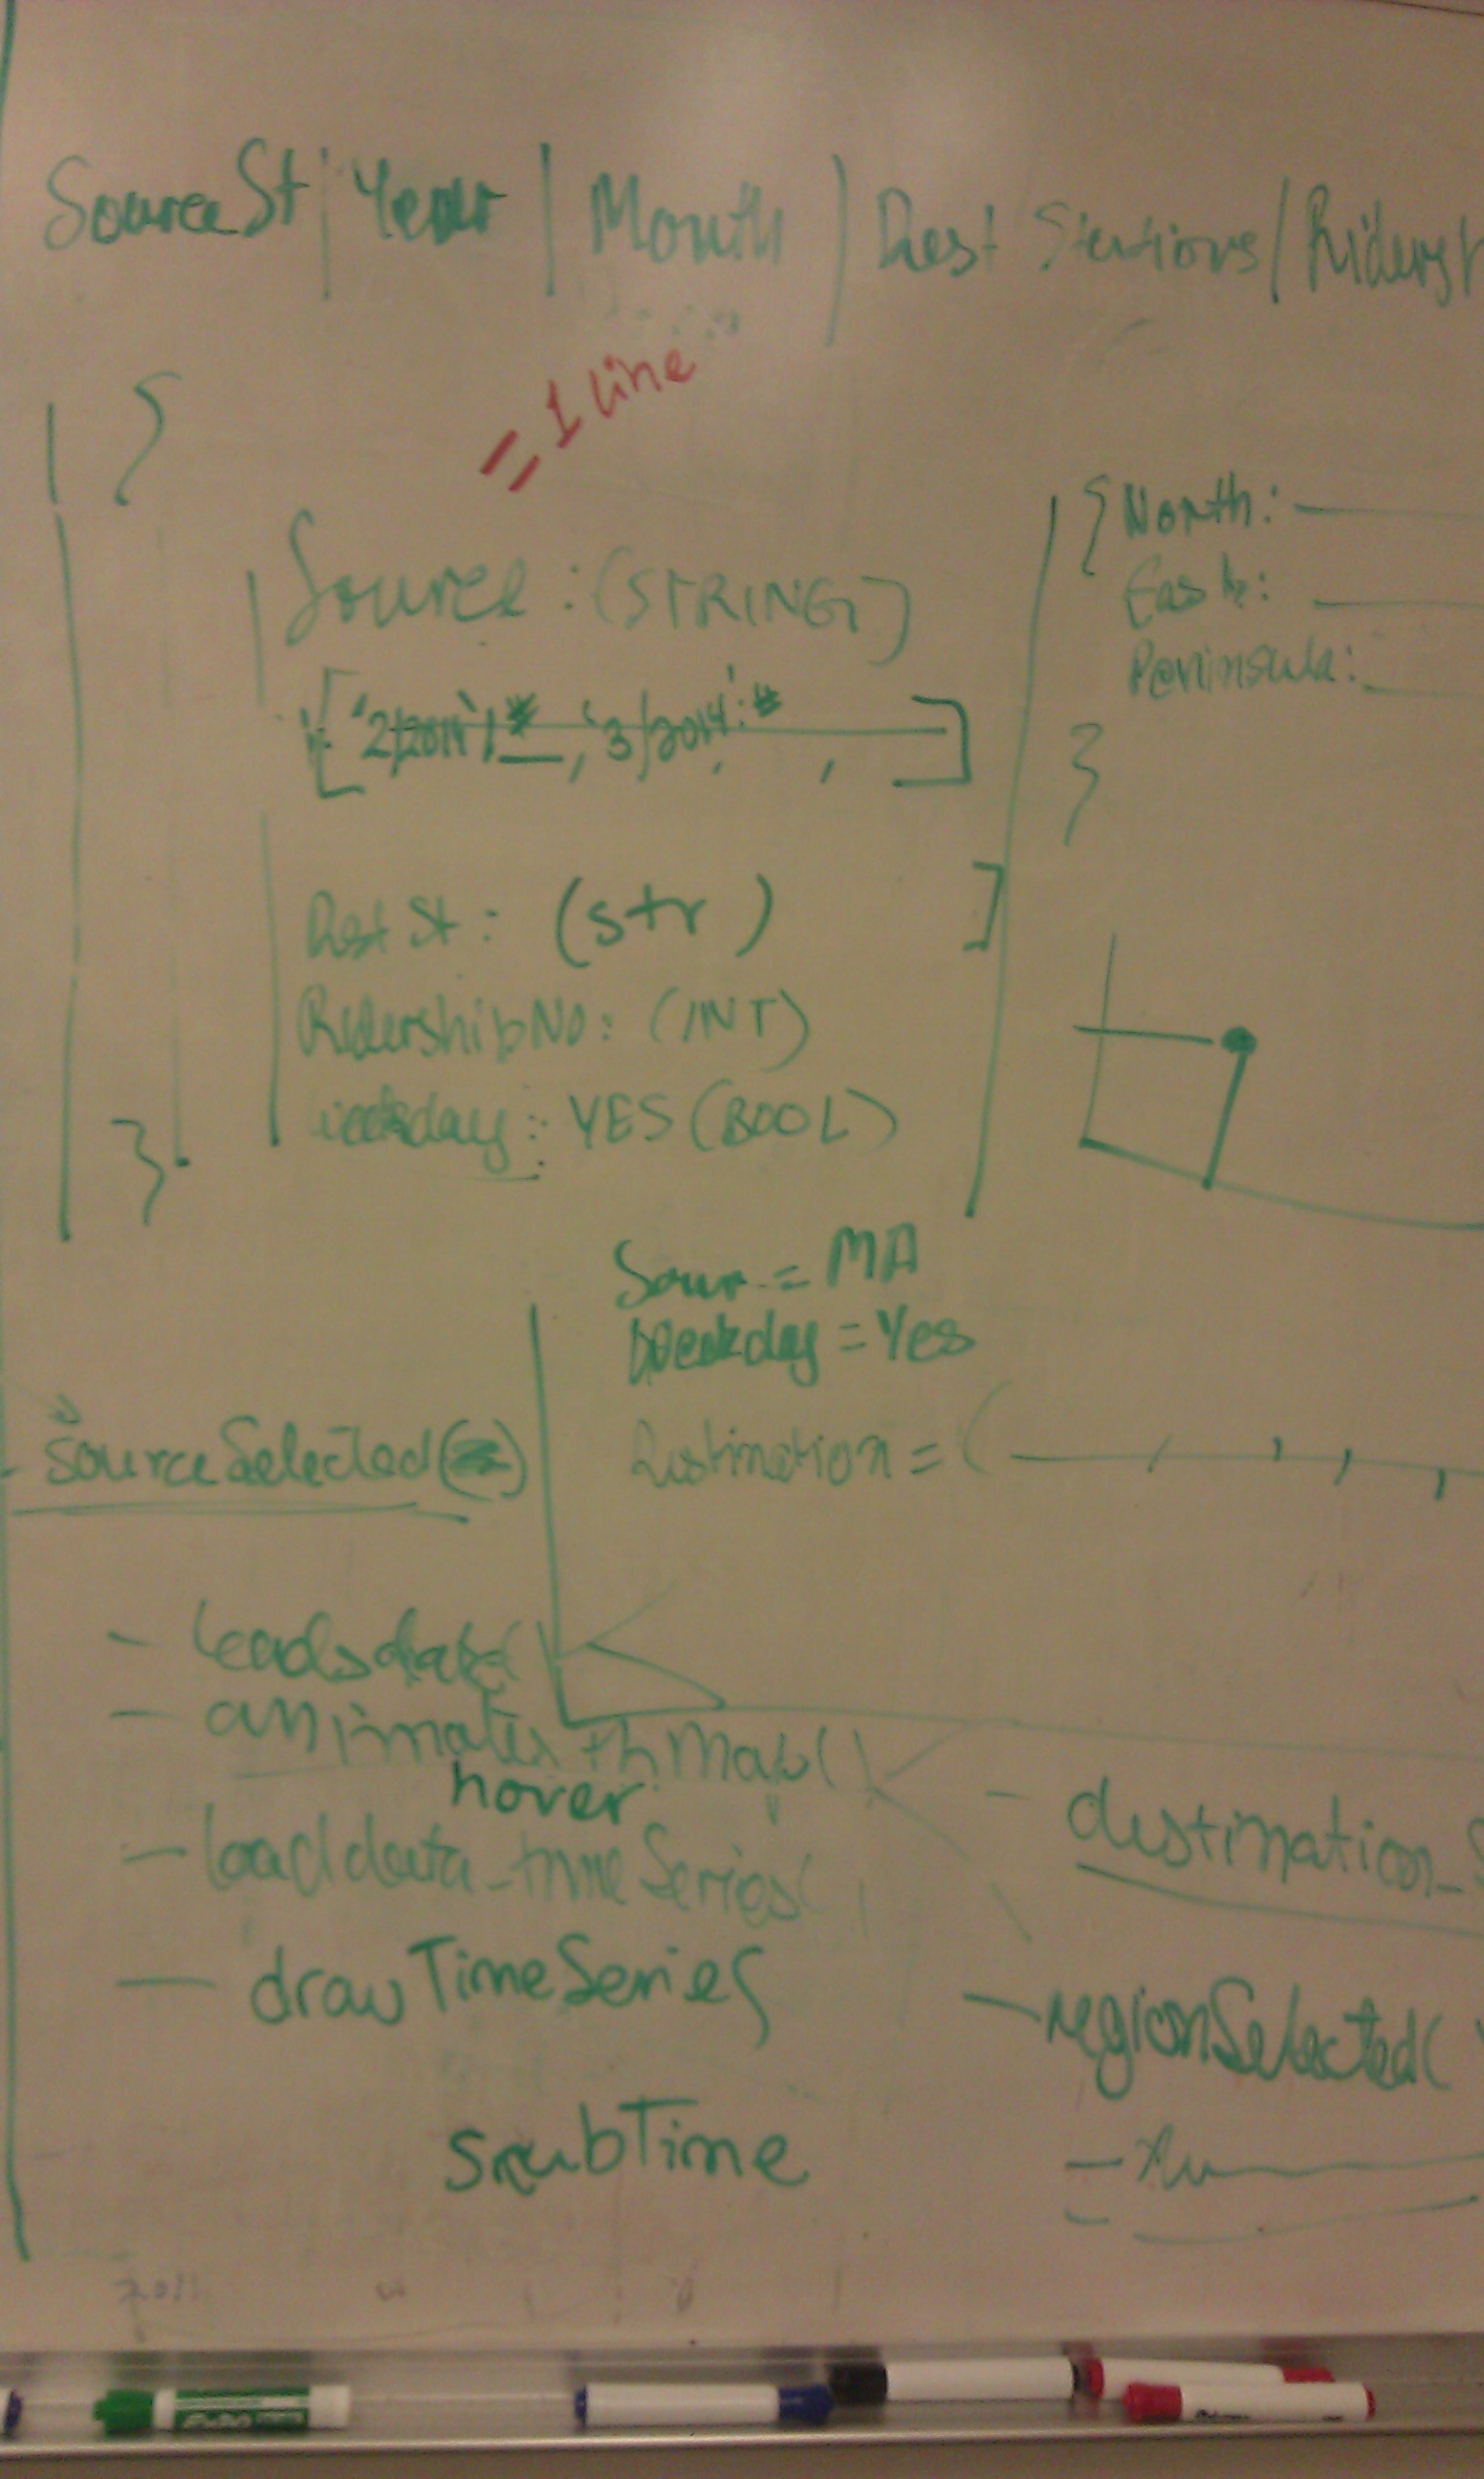 SourceSt | Year | Month | Dest Stations | Ridersh
= 1 line
{
Source : (STRING)
['2/2014': # , '3/2014': # , ]
Dest St : (str) ]
RidershipNo : (INT)
weekday : YES (BOOL)
}
{ North :
East :
Peninsula :
}
Sour = MA
Weekday = Yes
Destination = ( , , , ,
sourceSelected( )
- loadsdata(
- animates thMap( )
hover
- loaddata_timeSeries(
- drawTimeSeries
scrubTime
- destination_S
- regionSelected(
2011
EXPO